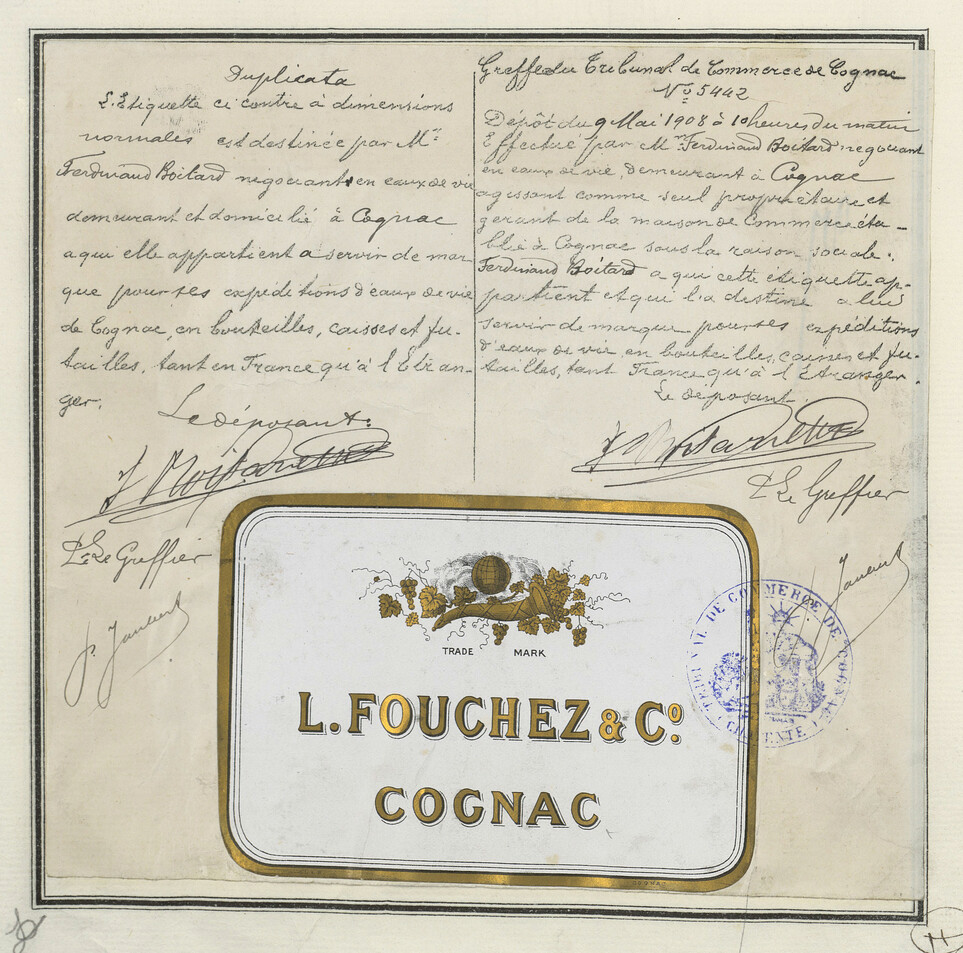 Duplicata
L'Etiquette ci contre à dimensions
normales est destinée par Mr
Ferdinand Boitard négociant en eaux de vie
demeurant et domicilié à Cognac
a qui elle appartient a servir de mar-
que pour ses expéditions d'eaux de vie
de Cognac, en bouteilles, caisses et fu-
tailles, tant en France qu'à l'Etran-
ger.
Le déposant.
P. Le Greffier
Greffe du Tribunal de Commerce de Cognac
No 5442
Dépôt du 9 Mai 1908 à 10 heures du matin
Effectué par Mr Ferdinand Boitard négociant
en eaux de vie, demeurant à Cognac
agissant comme seul propriétaire et
gérant de la maison de Commerce éta-
blie à Cognac sous la raison sociale:
Ferdinand Boitard a qui cette étiquette ap-
partient et qui l'a destine a lui
servir de marque pour ses expéditions
d'eaux de vie en bouteilles, caisses et fu-
tailles, tant France qu'à l'Etranger.
Le déposant.
P. Le Greffier
TRADE MARK
L. FOUCHEZ & Co.
COGNAC
COGNAC
TRIBUNAL DE COMMERCE DE COGNAC
CHARENTE